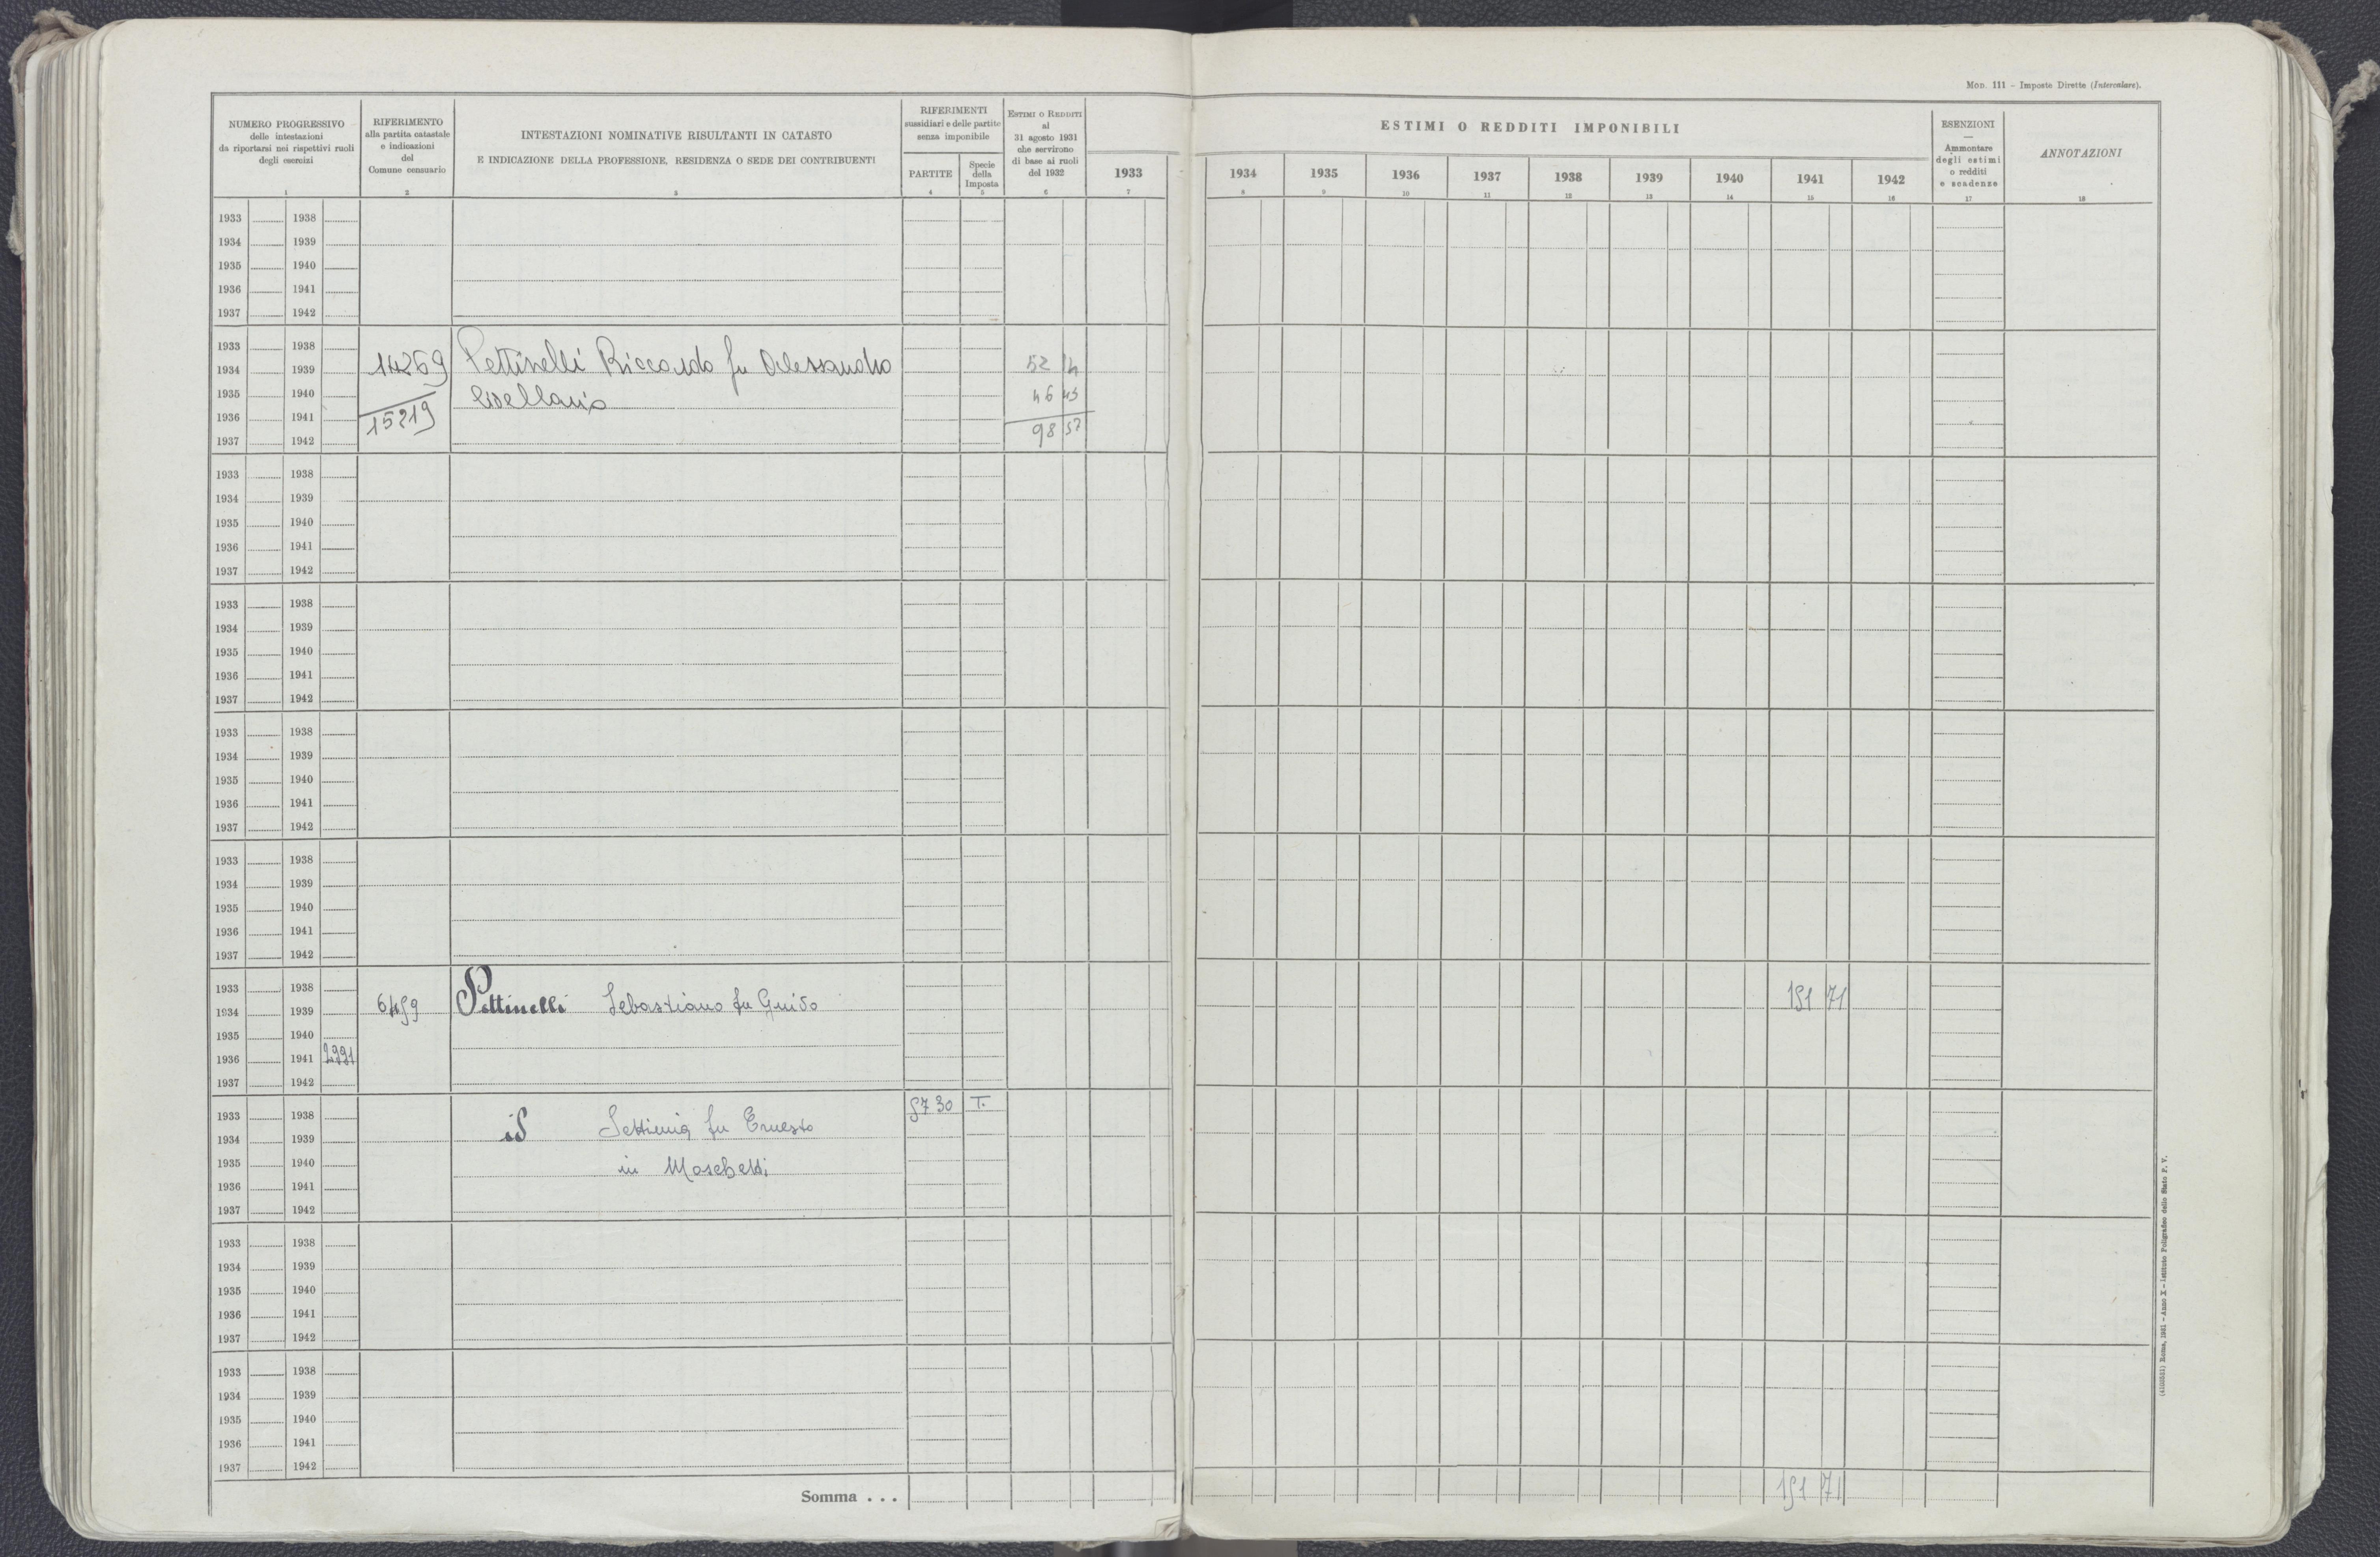 Mod. 111 - Imposte Dirette (Intercalare).
NUMERO PROGRESSIVO
delle intestazioni
da riportarsi nei rispettivi ruoli
degli esercizi
1
RIFERIMENTO
alla partita catastale
e indicazioni
del
Comune censuario
2
INTESTAZIONI NOMINATIVE RISULTANTI IN CATASTO
E INDICAZIONE DELLA PROFESSIONE, RESIDENZA O SEDE DEI CONTRIBUENTI
3
RIFERIMENTI
sussidiari e delle partite
senza imponibile
PARTITE
4
Specie
della
Imposta
5
ESTIMI O REDDITI
al
31 agosto 1931
che servirono
di base ai ruoli
del 1932
6
ESTIMI O REDDITI IMPONIBILI
1933 1934 1935 1936 1937 1938 1939 1940 1941 1942
7 8 9 10 11 12 13 14 15 16
ESENZIONI
—
Ammontare
degli estimi
o redditi
e scadenze
17
ANNOTAZIONI
18
1933 1938
1934 1939
1935 1940
1936 1941
1937 1942
1933 1938
1934 1939 14269 Pettinelli Riccardo fu Alessandro 52
1935 1940 livellario 46 43
1936 1941 15219
1937 1942 98 57
1933 1938
1934 1939
1935 1940
1936 1941
1937 1942
1933 1938
1934 1939
1935 1940
1936 1941
1937 1942
1933 1938
1934 1939
1935 1940
1936 1941
1937 1942
1933 1938
1934 1939
1935 1940
1936 1941
1937 1942
1933 1938
1934 1939 6459 Pettinelli Sebastiano fu Guido 151 71
1935 1940
1936 1941 2991
1937 1942
1933 1938 5730 T.
1934 1939 id Settimia fu Ernesto
1935 1940 in Moschetti
1936 1941
1937 1942
1933 1938
1934 1939
1935 1940
1936 1941
1937 1942
1933 1938
1934 1939
1935 1940
1936 1941
1937 1942
Somma . . . 151 71
Roma, 1931 - Anno X - Istituto Poligrafico dello Stato P. V.